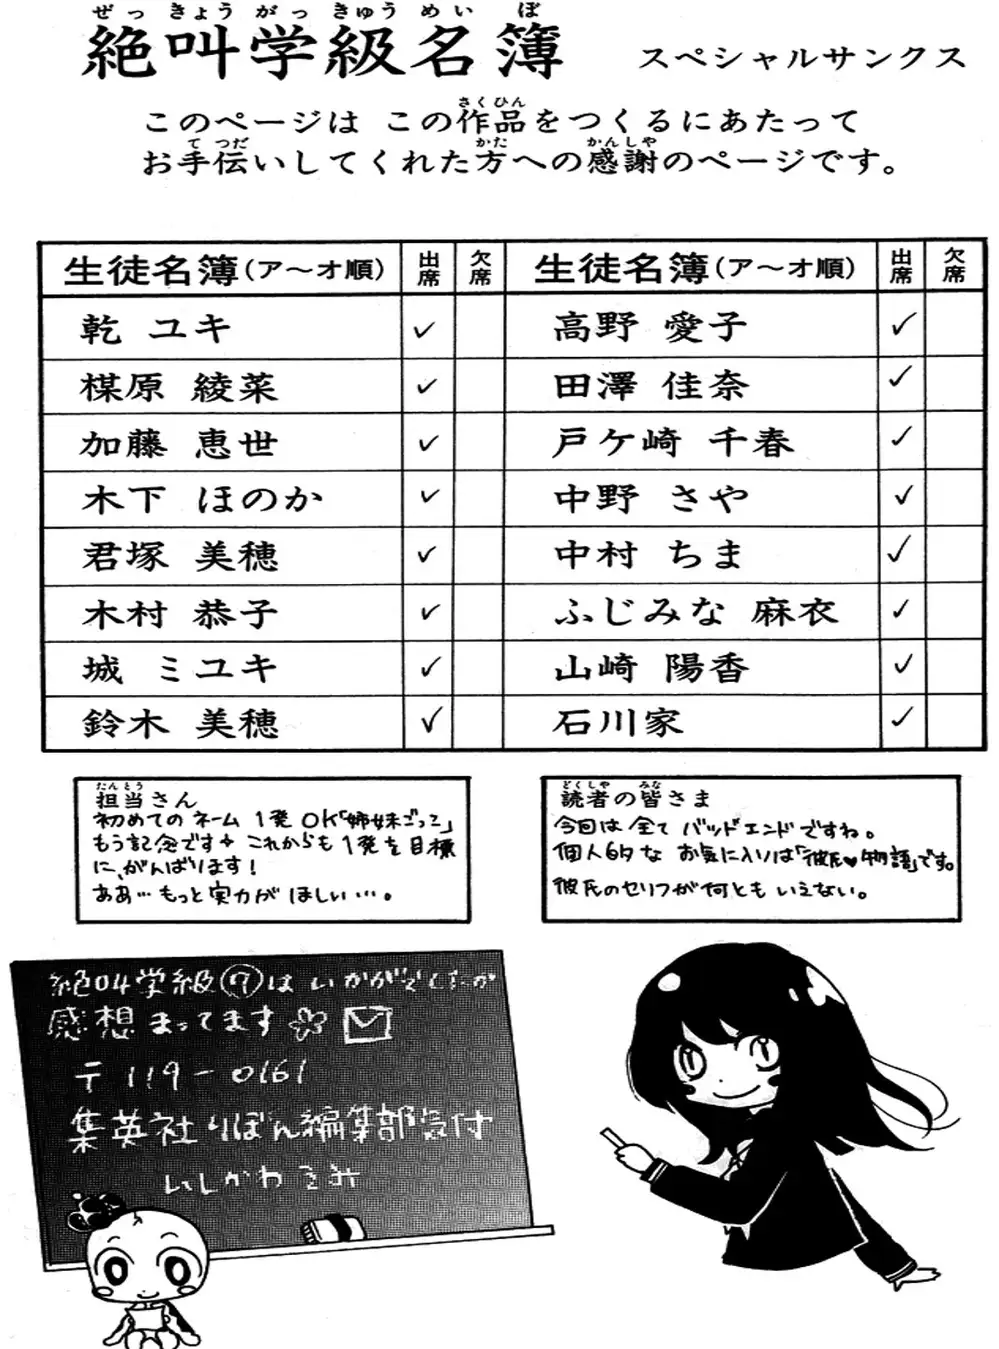 絶叫学級名簿 スペシャルサンクス
このページは この作品をつくるにあたって
お手伝いしてくれた方への感謝のページです。
生徒名簿(ア〜オ順) 出席 欠席 生徒名簿(ア〜オ順) 出席 欠席
乾 ユキ ✓ 高野 愛子 ✓
楳原 綾菜 ✓ 田澤 佳奈 ✓
加藤 恵世 ✓ 戸ケ崎 千春 ✓
木下 ほのか ✓ 中野 さや ✓
君塚 美穂 ✓ 中村 ちま ✓
木村 恭子 ✓ ふじみな 麻衣 ✓
城 ミユキ ✓ 山崎 陽香 ✓
鈴木 美穂 ✓ 石川家 ✓
担当さん
初めてのネーム 1発OK「姉妹ごっこ」
もう記念です+ これからも1発を目標
に、がんばります!
ああ…もっと実力がほしい…。
読者の皆さま
今回は全てバッドエンドですね。
個人的な お気に入りは「彼氏♥物語」です。
彼氏のセリフが何ともいえない。
絶叫学級⑦はいかがでしたか
感想まってます
〒119-0161
集英社りぼん編集部気付
いしかわえみ